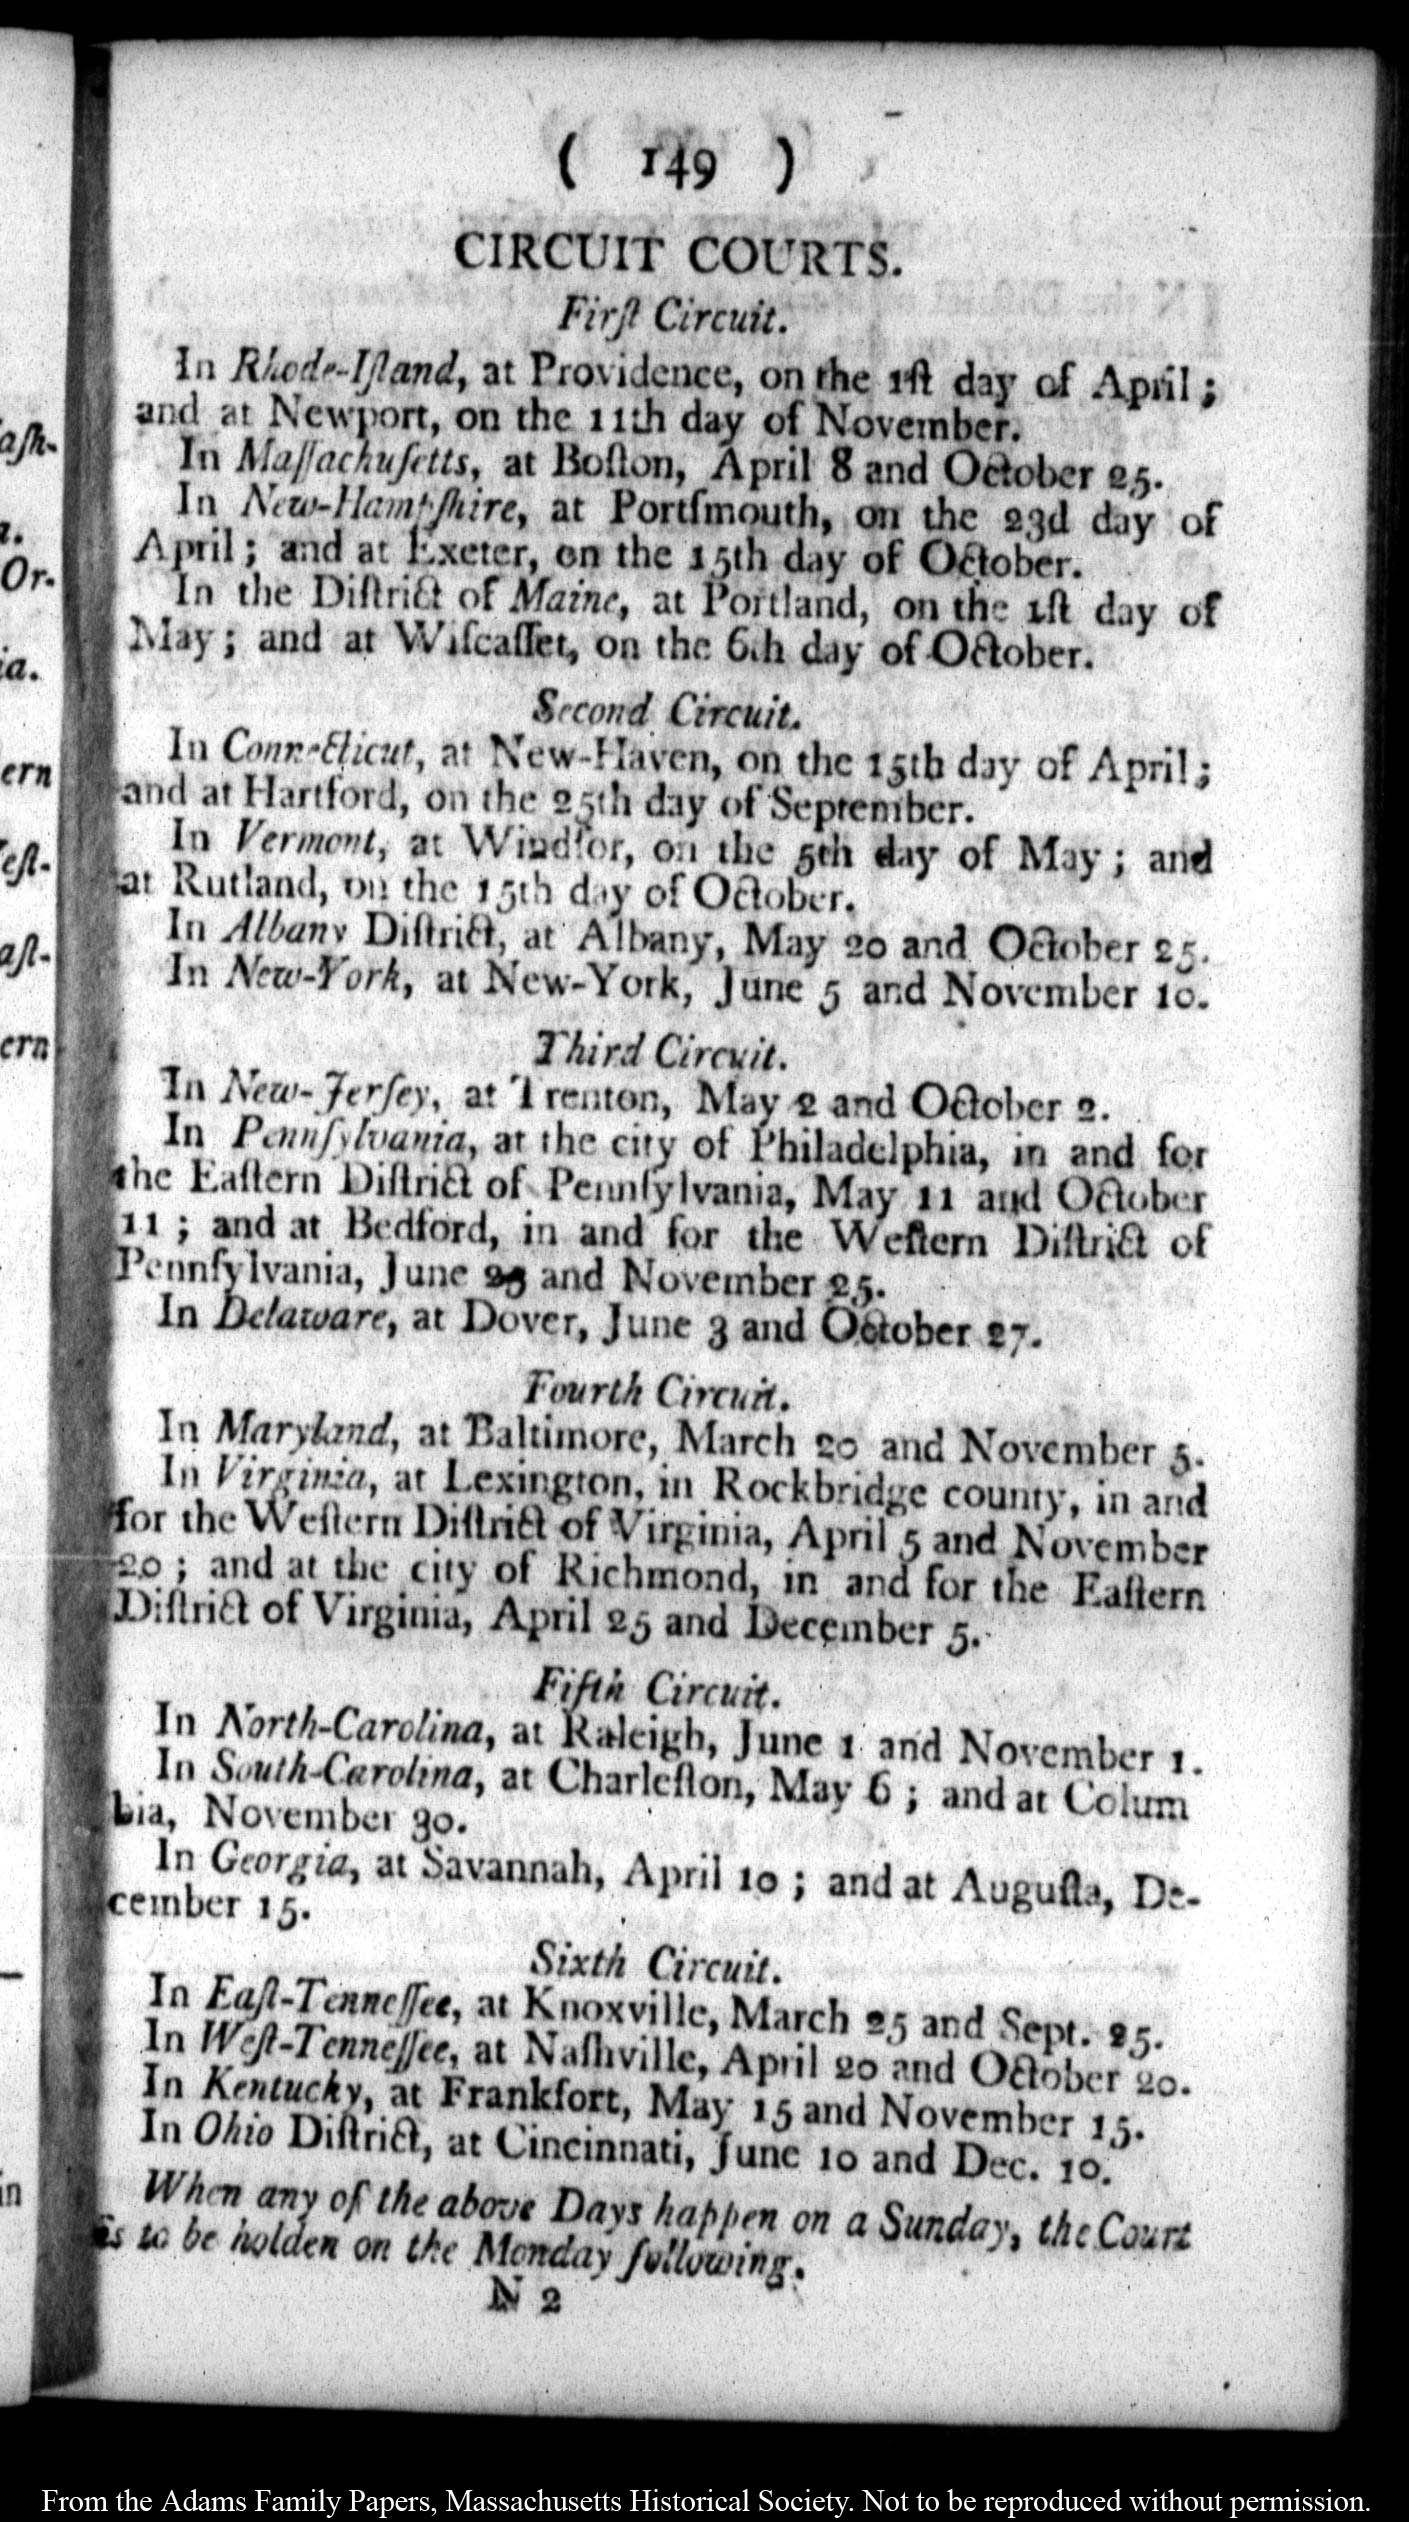 ( 149 )
CIRCUIT COURTS.
Firſt Circuit.
In Rhode-Iſland, at Providence, on the 1ſt day of April;
and at Newport, on the 11th day of November.
In Maſſachuſetts, at Boſton, April 8 and October 25.
In New-Hampſhire, at Portſmouth, on the 23d day of
April; and at Exeter, on the 15th day of October.
In the Diſtrict of Maine, at Portland, on the 1ſt day of
May; and at Wiſcaſſet, on the 6th day of October.
Second Circuit.
In Connecticut, at New-Haven, on the 15th day of April;
and at Hartford, on the 25th day of September.
In Vermont, at Windſor, on the 5th day of May; and
at Rutland, on the 15th day of October.
In Albany Diſtrict, at Albany, May 20 and October 25.
In New-York, at New-York, June 5 and November 10.
Third Circuit.
In New-Jerſey, at Trenton, May 2 and October 2.
In Pennſylvania, at the city of Philadelphia, in and for
the Eaſtern Diſtrict of Pennſylvania, May 11 and October
11; and at Bedford, in and for the Weſtern Diſtrict of
Pennſylvania, June and November 25.
In Delaware, at Dover, June 3 and October 27.
Fourth Circuit.
In Maryland, at Baltimore, March 20 and November 5.
In Virginia, at Lexington, in Rockbridge county, in and
for the Weſtern Diſtrict of Virginia, April 5 and November
20; and at the city of Richmond, in and for the Eaſtern
Diſtrict of Virginia, April 25 and December 5.
Fifth Circuit.
In North-Carolina, at Raleigh, June 1 and November 1.
In South-Carolina, at Charleſton, May 6; and at Colum
bia, November 30.
In Georgia, at Savannah, April 10; and at Auguſta, De-
cember 15.
Sixth Circuit.
In Eaſt-Tenneſſee, at Knoxville, March 25 and Sept. 25.
In Weſt-Tenneſſee, at Naſhville, April 20 and October 20.
In Kentucky, at Frankfort, May 15 and November 15.
In Ohio Diſtrict, at Cincinnati, June 10 and Dec. 10.
When any of the above Days happen on a Sunday, the Court
is to be holden on the Monday following.
N 2
From the Adams Family Papers, Massachusetts Historical Society. Not to be reproduced without permission.